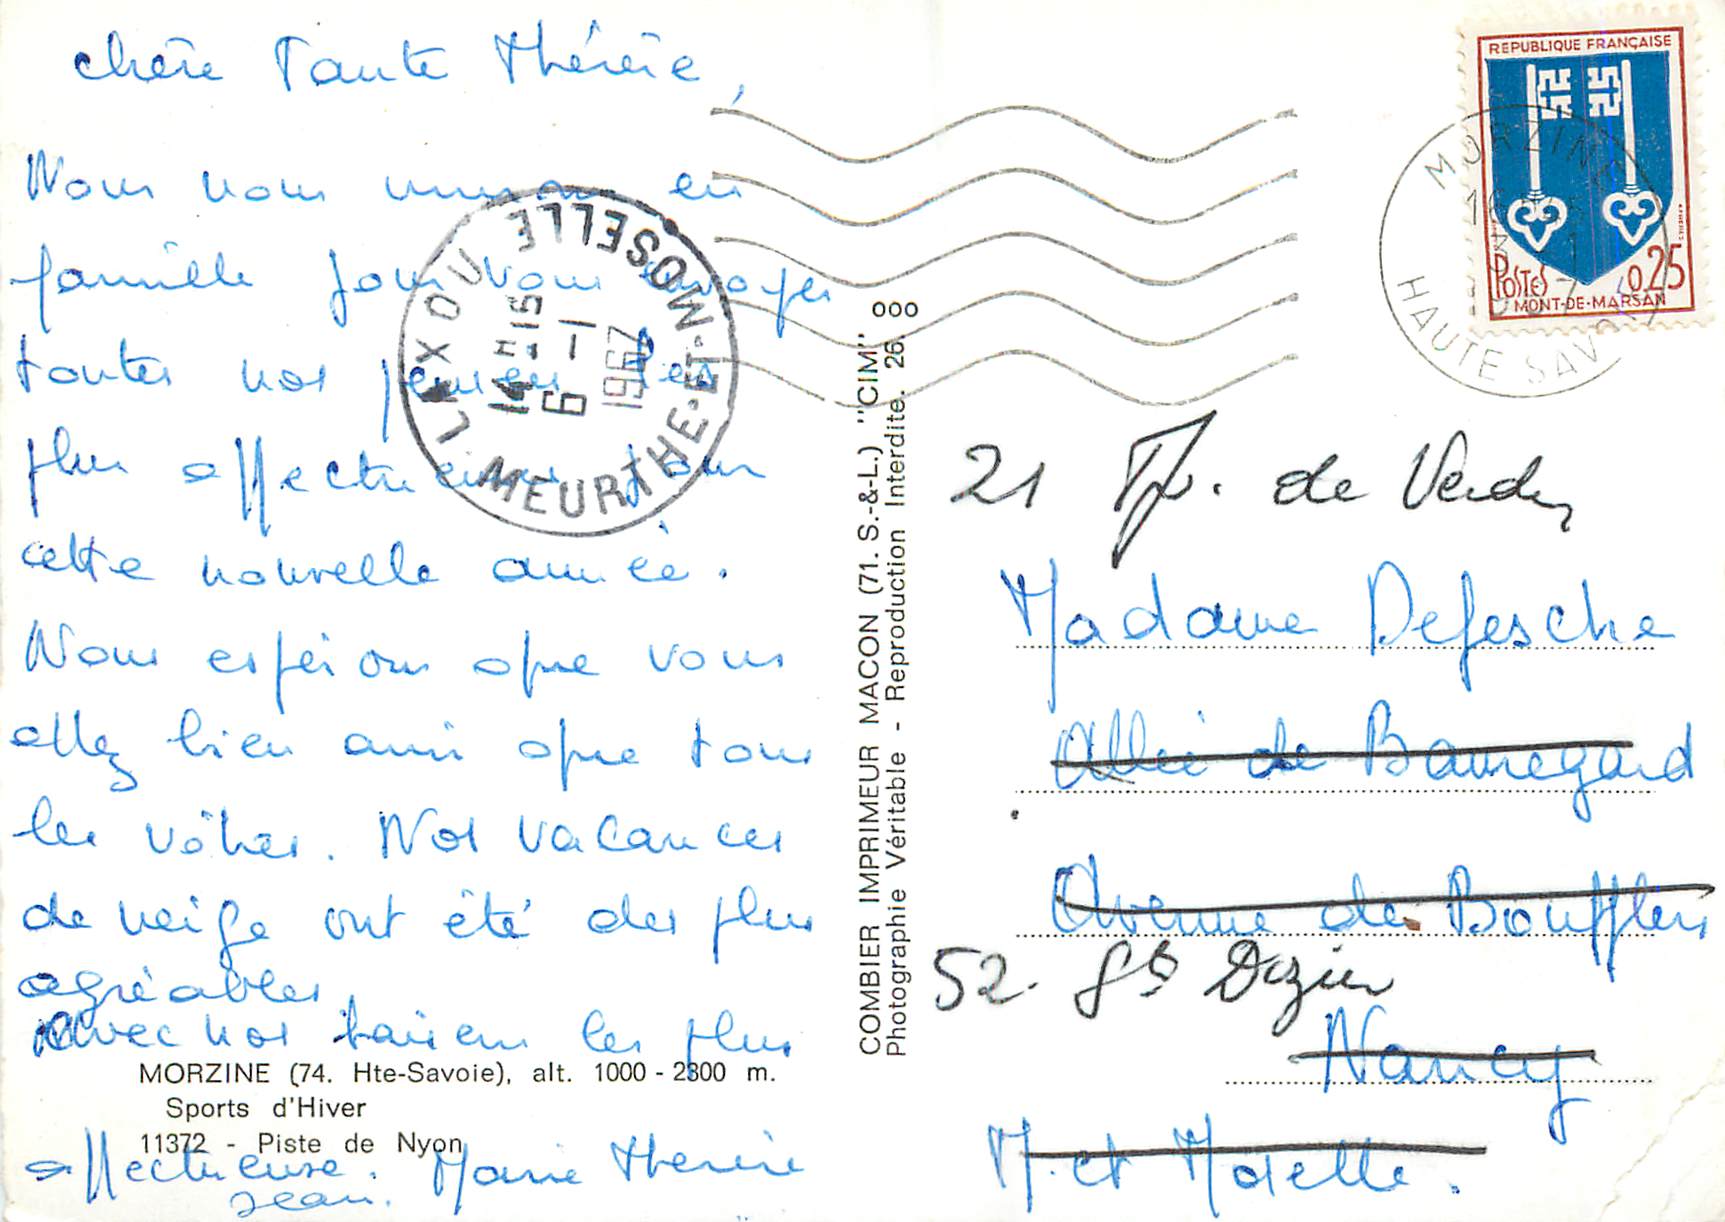 chère Tante Thérèse,
Nous nous unissons en
famille pour vous envoyer
toutes nos pensées les
plus affectueuses pour
cette nouvelle année.
Nous espérons que vous
allez bien ainsi que tous
les vôtres. Nos vacances
de neige ont été des plus
agréables.
Avec nos baisers les plus
MORZINE (74. Hte-Savoie), alt. 1000 - 2300 m.
Sports d'Hiver
11372 - Piste de Nyon
affectueuse. Marie Thérèse
Jean.
LAXOU
MEURTHE-ET-MOSELLE
14 H 15
6 -1
1967
COMBIER IMPRIMEUR MACON (71. S.-&-L.) "CIM"
Photographie Véritable - Reproduction Interdite. 26
000
REPUBLIQUE FRANÇAISE
POSTES 0,25
MONT-DE-MARSAN
MORZINE
HAUTE SAVOIE
21 de Verdun
Madame Defesche
Allée de Beauregard
Avenue de Boufflers
52. St Dizier
Nancy
M. et Moselle.